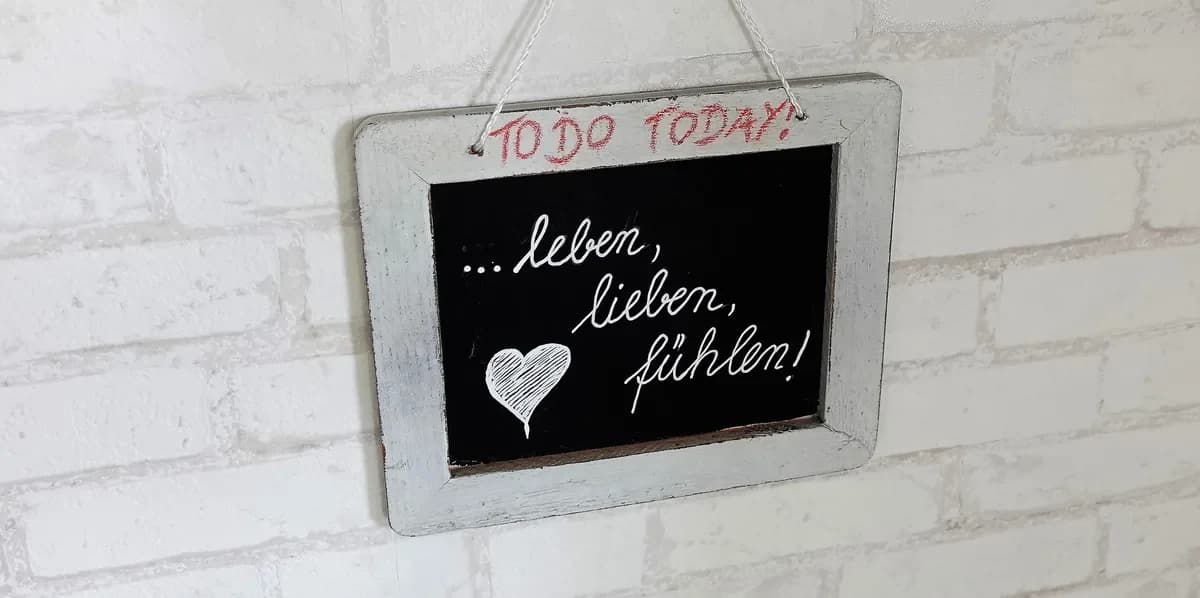 TO DO TODAY!
... leben,
lieben,
fühlen!